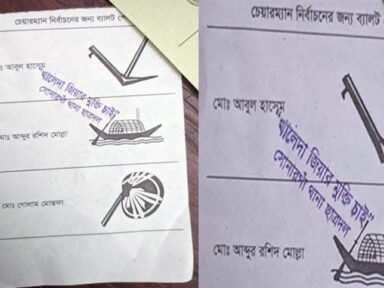 চেয়ারম্যান নির্বাচনের জন্য ব্যালট পে
মোঃ আবুল হাসেম
খালেদা জিয়ার মুক্তি চাই"
সোনারগাঁ থানা ছাত্রদল
মোঃ আব্দুর রশিদ মোল্লা
মোঃ গোলাম মোস্তফা
চেয়ারম্যান নির্বাচনের জন্য ব্যালট
মোঃ আবুল হাসেম
খালেদা জিয়ার মুক্তি চাই"
সোনারগাঁ থানা ছাত্রদল
মোঃ আব্দুর রশিদ মোল্লা